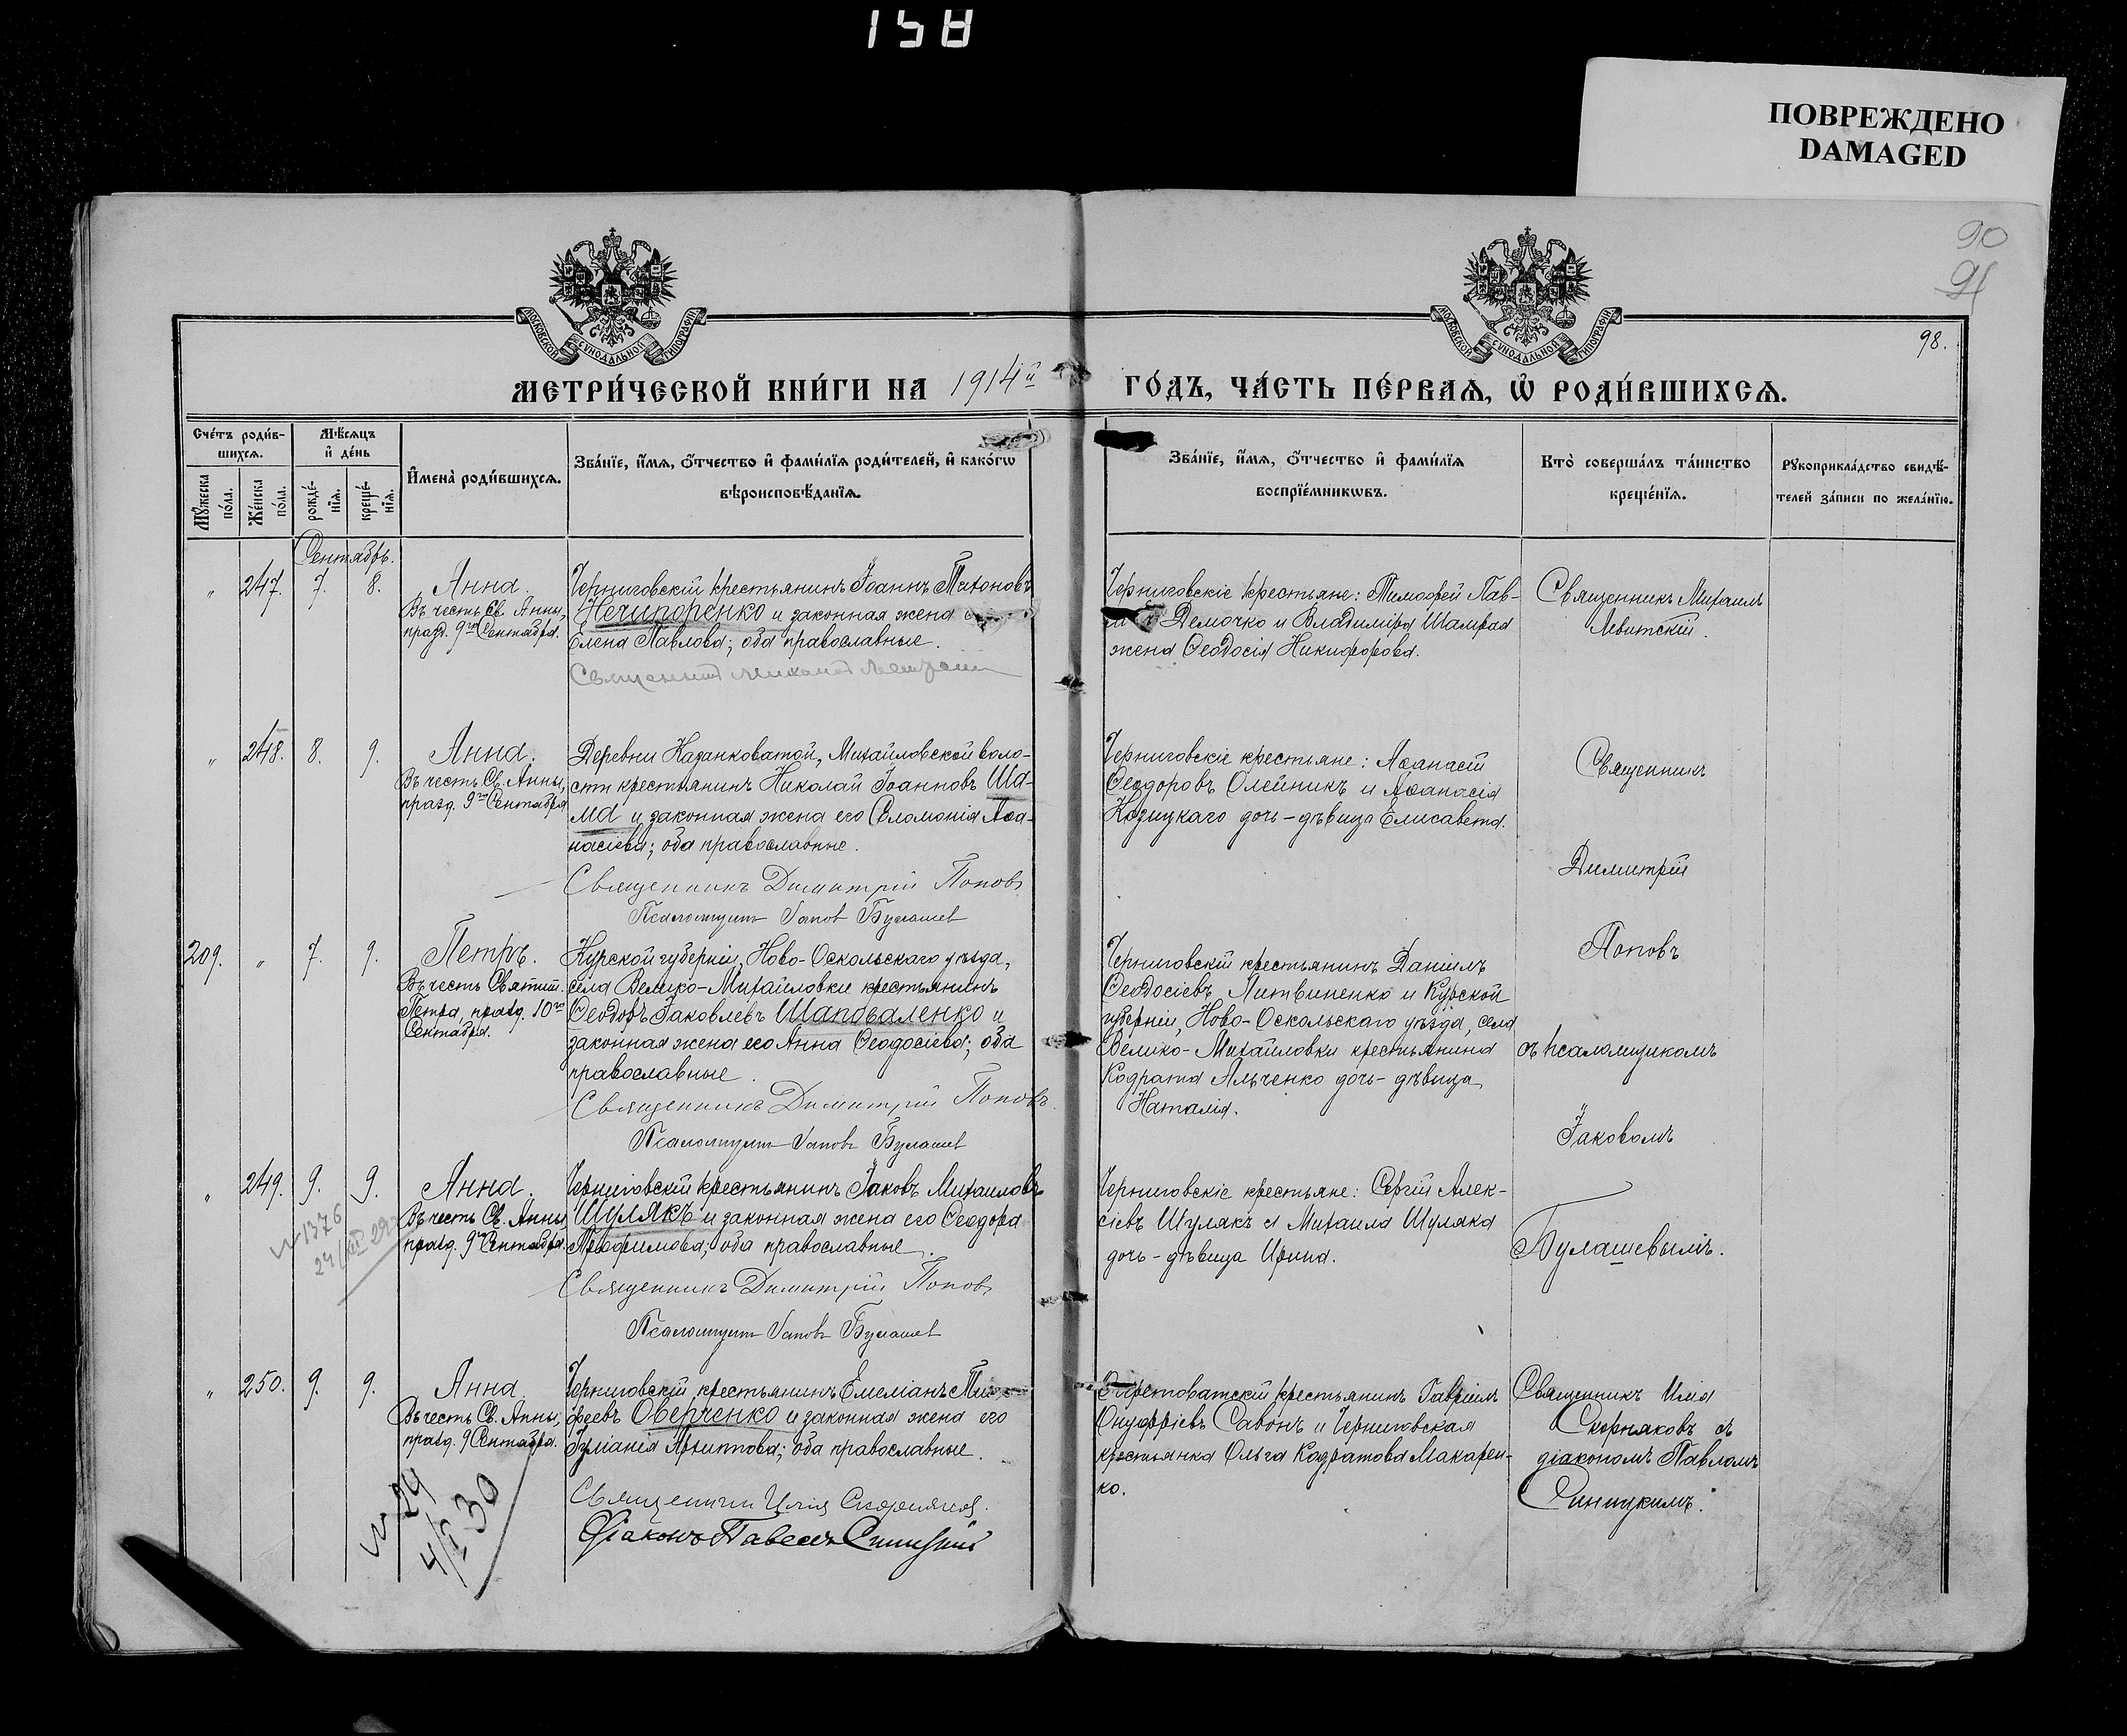 158
ПОВРЕЖДЕНО
DAMAGED
90
91
98.
МОСКОВСКОЙ СѴНОДАЛЬНОЙ ТИПОГРАФІИ
МОСКОВСКОЙ СѴНОДАЛЬНОЙ ТИПОГРАФІИ
МЕТРИ́ЧЕСКОЙ КНИ́ГИ НА 1914й ГО́ДЪ, ЧА́СТЬ ПЕ́РВАѦ, Ѡ҆ РОДИ́ВШИХСѦ.
Сче́тъ роди́вшихсѧ.
Мѣ́сѧцъ и҆ де́нь
Мꙋ́жеска по́ла.
Же́нска по́ла.
рожде́нїѧ.
креще́нїѧ.
И҆мена̀ роди́вшихсѧ.
Зва́нїе, и҆́мѧ, ѻ҆́тчество и҆ фами́лїѧ роди́телей, и҆ како́гѡ
вѣроисповѣ́данїѧ.
Зва́нїе, и҆́мѧ, ѻ҆́тчество и҆ фами́лїѧ
воспрїе́мникѡвъ.
Кто̀ соверша́лъ та́инство
креще́нїѧ.
Рꙋкоприкла́дство свидѣ́телей за́писи по жела́нїю.
Сентябрь.
" 247. 7. 8.
Анна.
Въ честь Св. Анны,
празд. 9го Сентября.
Черниговскій крестьянинъ Іоаннъ Тихоновъ
Нечипоренко и законная жена
Елена Павлова; оба православные.
Священникъ Михаилъ Левитскій
Черниговскіе крестьяне: Тимофей Пав-
Демочко и Владиміра Шамрая
жена Ѳеодосія Никифорова.
Священникъ Михаилъ
Левитскій.
" 248. 8. 9.
Анна.
Въ честь Св. Анны,
празд. 9го Сентября
Деревни Казанковатой, Михайловской воло-
сти крестьянинъ Николай Іоанновъ Ша-
ма и законная жена его Соломонія Аѳа-
насіева; оба православные.
Священникъ Димитрій Поповъ
Псаломщикъ Іаковъ Булашев
Черниговскіе крестьяне: Аѳанасій
Ѳеодоровъ Олейникъ и Аѳанасія
Козицкаго дочь-дѣвица Елисавета.
Священникъ
Димитрій
Поповъ
съ псаломщикомъ
Іаковомъ
Булашевымъ.
209. " 7. 9.
Петръ.
Въ честь Святит.
Петра, празд. 10го
Сентября.
Курской губерніи, Ново-Оскольскаго уѣзда,
села Велико-Михайловки крестьянинъ
Ѳеодоръ Іаковлевъ Шаповаленко и
законная жена его Анна Ѳеодосіева; оба
православные.
Священникъ Димитрій Поповъ
Псаломщикъ Іаковъ Булашев
Черниговскій крестьянинъ Даніилъ
Ѳеодосіевъ Литвиненко и Курской
губерніи, Ново-Оскольскаго уѣзда, села
Велико-Михайловки крестьянина
Кодрата Ильченко дочь-дѣвица
Наталія.
" 249. 9. 9.
Анна.
Въ честь Св. Анны
празд. 9го Сентября.
N 1376
Черниговскій крестьянинъ Іаковъ Михаиловъ
Шулякъ и законная жена его Ѳеодора
Трофимова; оба православные.
Священникъ Димитрій Поповъ
Псаломщикъ Іаковъ Булашев
Черниговскіе крестьяне: Сергій Алек-
сіевъ Шулякъ и Михаила Шуляка
дочь-дѣвица Ирина.
" 250. 9. 9.
Анна.
Въ честь Св. Анны,
празд. 9 Сентября.
N 29
4/I 30
Черниговскій крестьянинъ Емеліанъ Тимо-
феевъ Оверченко и законная жена его
Іуліанія Архипова; оба православные.
Священникъ Илія Скорняковъ.
Діаконъ Павелъ Синицкій
крестьянинъ Гавріилъ
Онуфріевъ Савонъ и Черниговская
крестьянка Ольга Кодратова Макарен-
ко.
Священникъ Илія
Скорняковъ съ
діакономъ Павломъ
Синицкимъ.